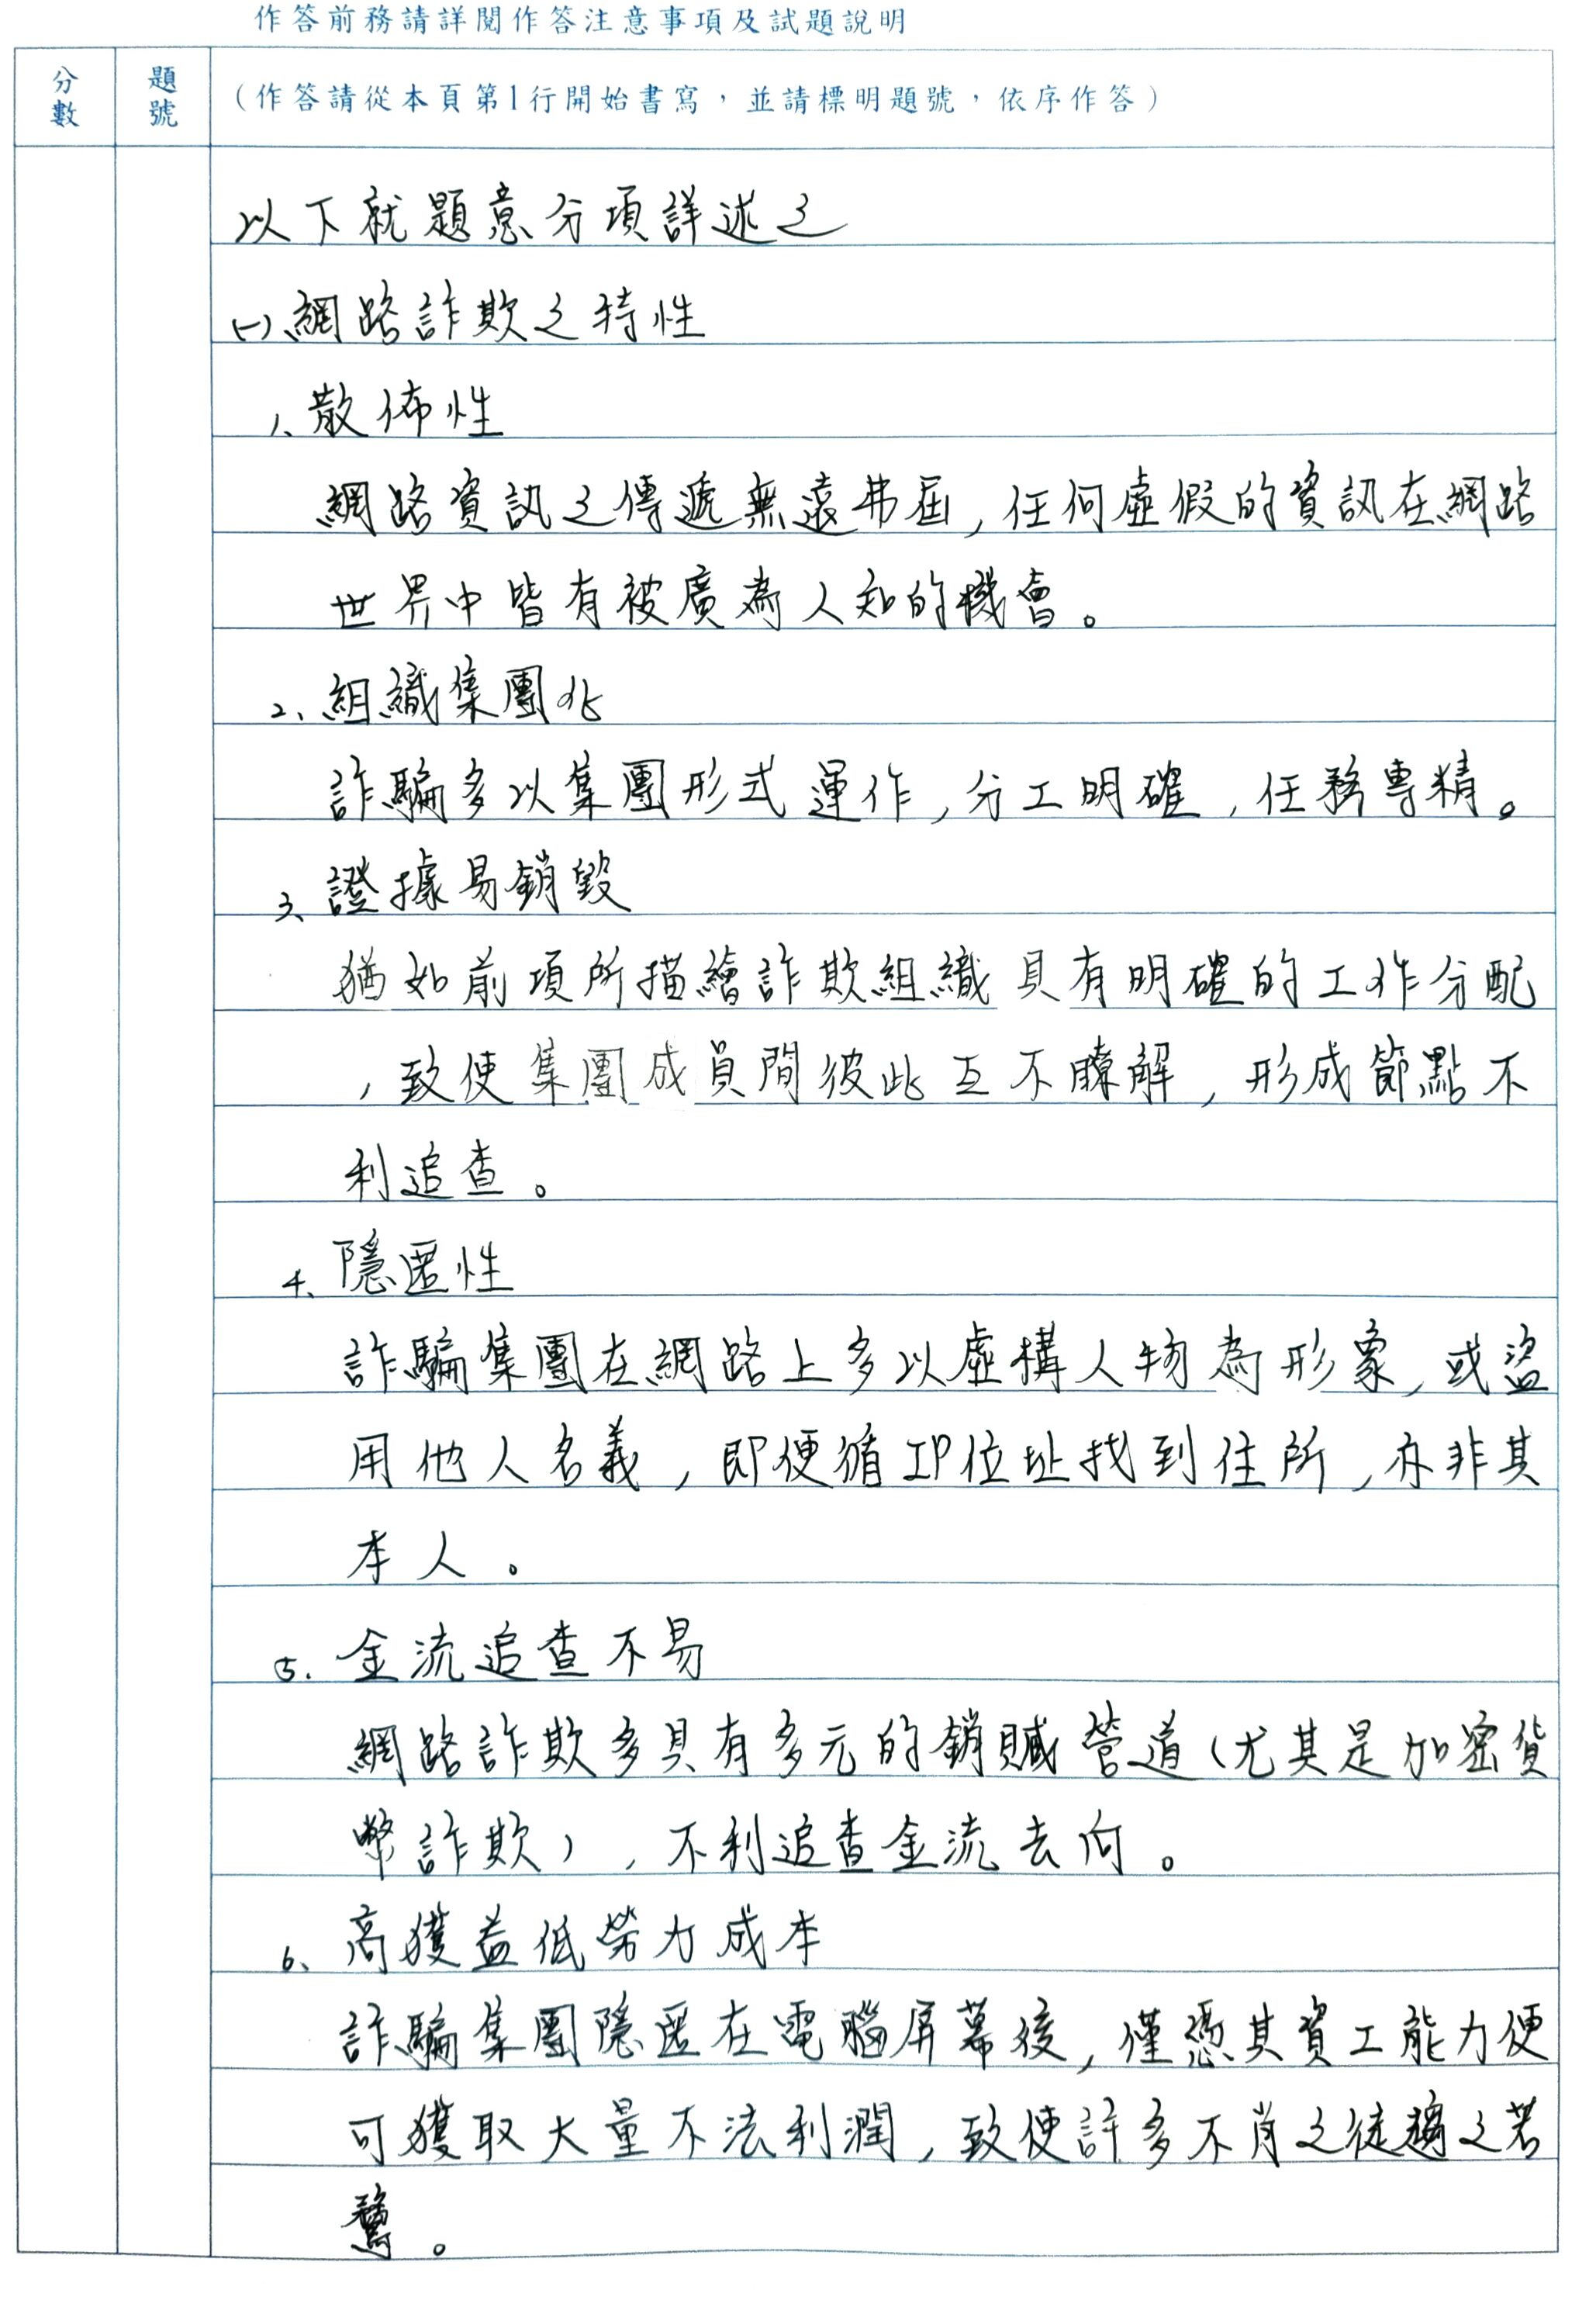 作答前務請詳閱作答注意事項及試題說明
分數
題號
（作答請從本頁第1行開始書寫，並請標明題號，依序作答）
以下就題意分項詳述之
(一)、網路詐欺之特性
1、散佈性
網路資訊之傳遞無遠弗屆，任何虛假的資訊在網路
世界中皆有被廣為人知的機會。
2、組織集團化
詐騙多以集團形式運作，分工明確，任務專精。
3、證據易銷毀
猶如前項所描繪詐欺組織具有明確的工作分配
，致使集團成員間彼此互不瞭解，形成節點不
利追查。
4、隱匿性
詐騙集團在網路上多以虛構人物為形象，或盜
用他人名義，即便循IP位址找到住所，亦非其
本人。
5. 金流追查不易
網路詐欺多具有多元的銷贓管道（尤其是加密貨
幣詐欺），不利追查金流去向。
6、高獲益低勞力成本
詐騙集團隱匿在電腦屏幕後，僅憑其資工能力便
可獲取大量不法利潤，致使許多不肖之徒趨之若
鶩。